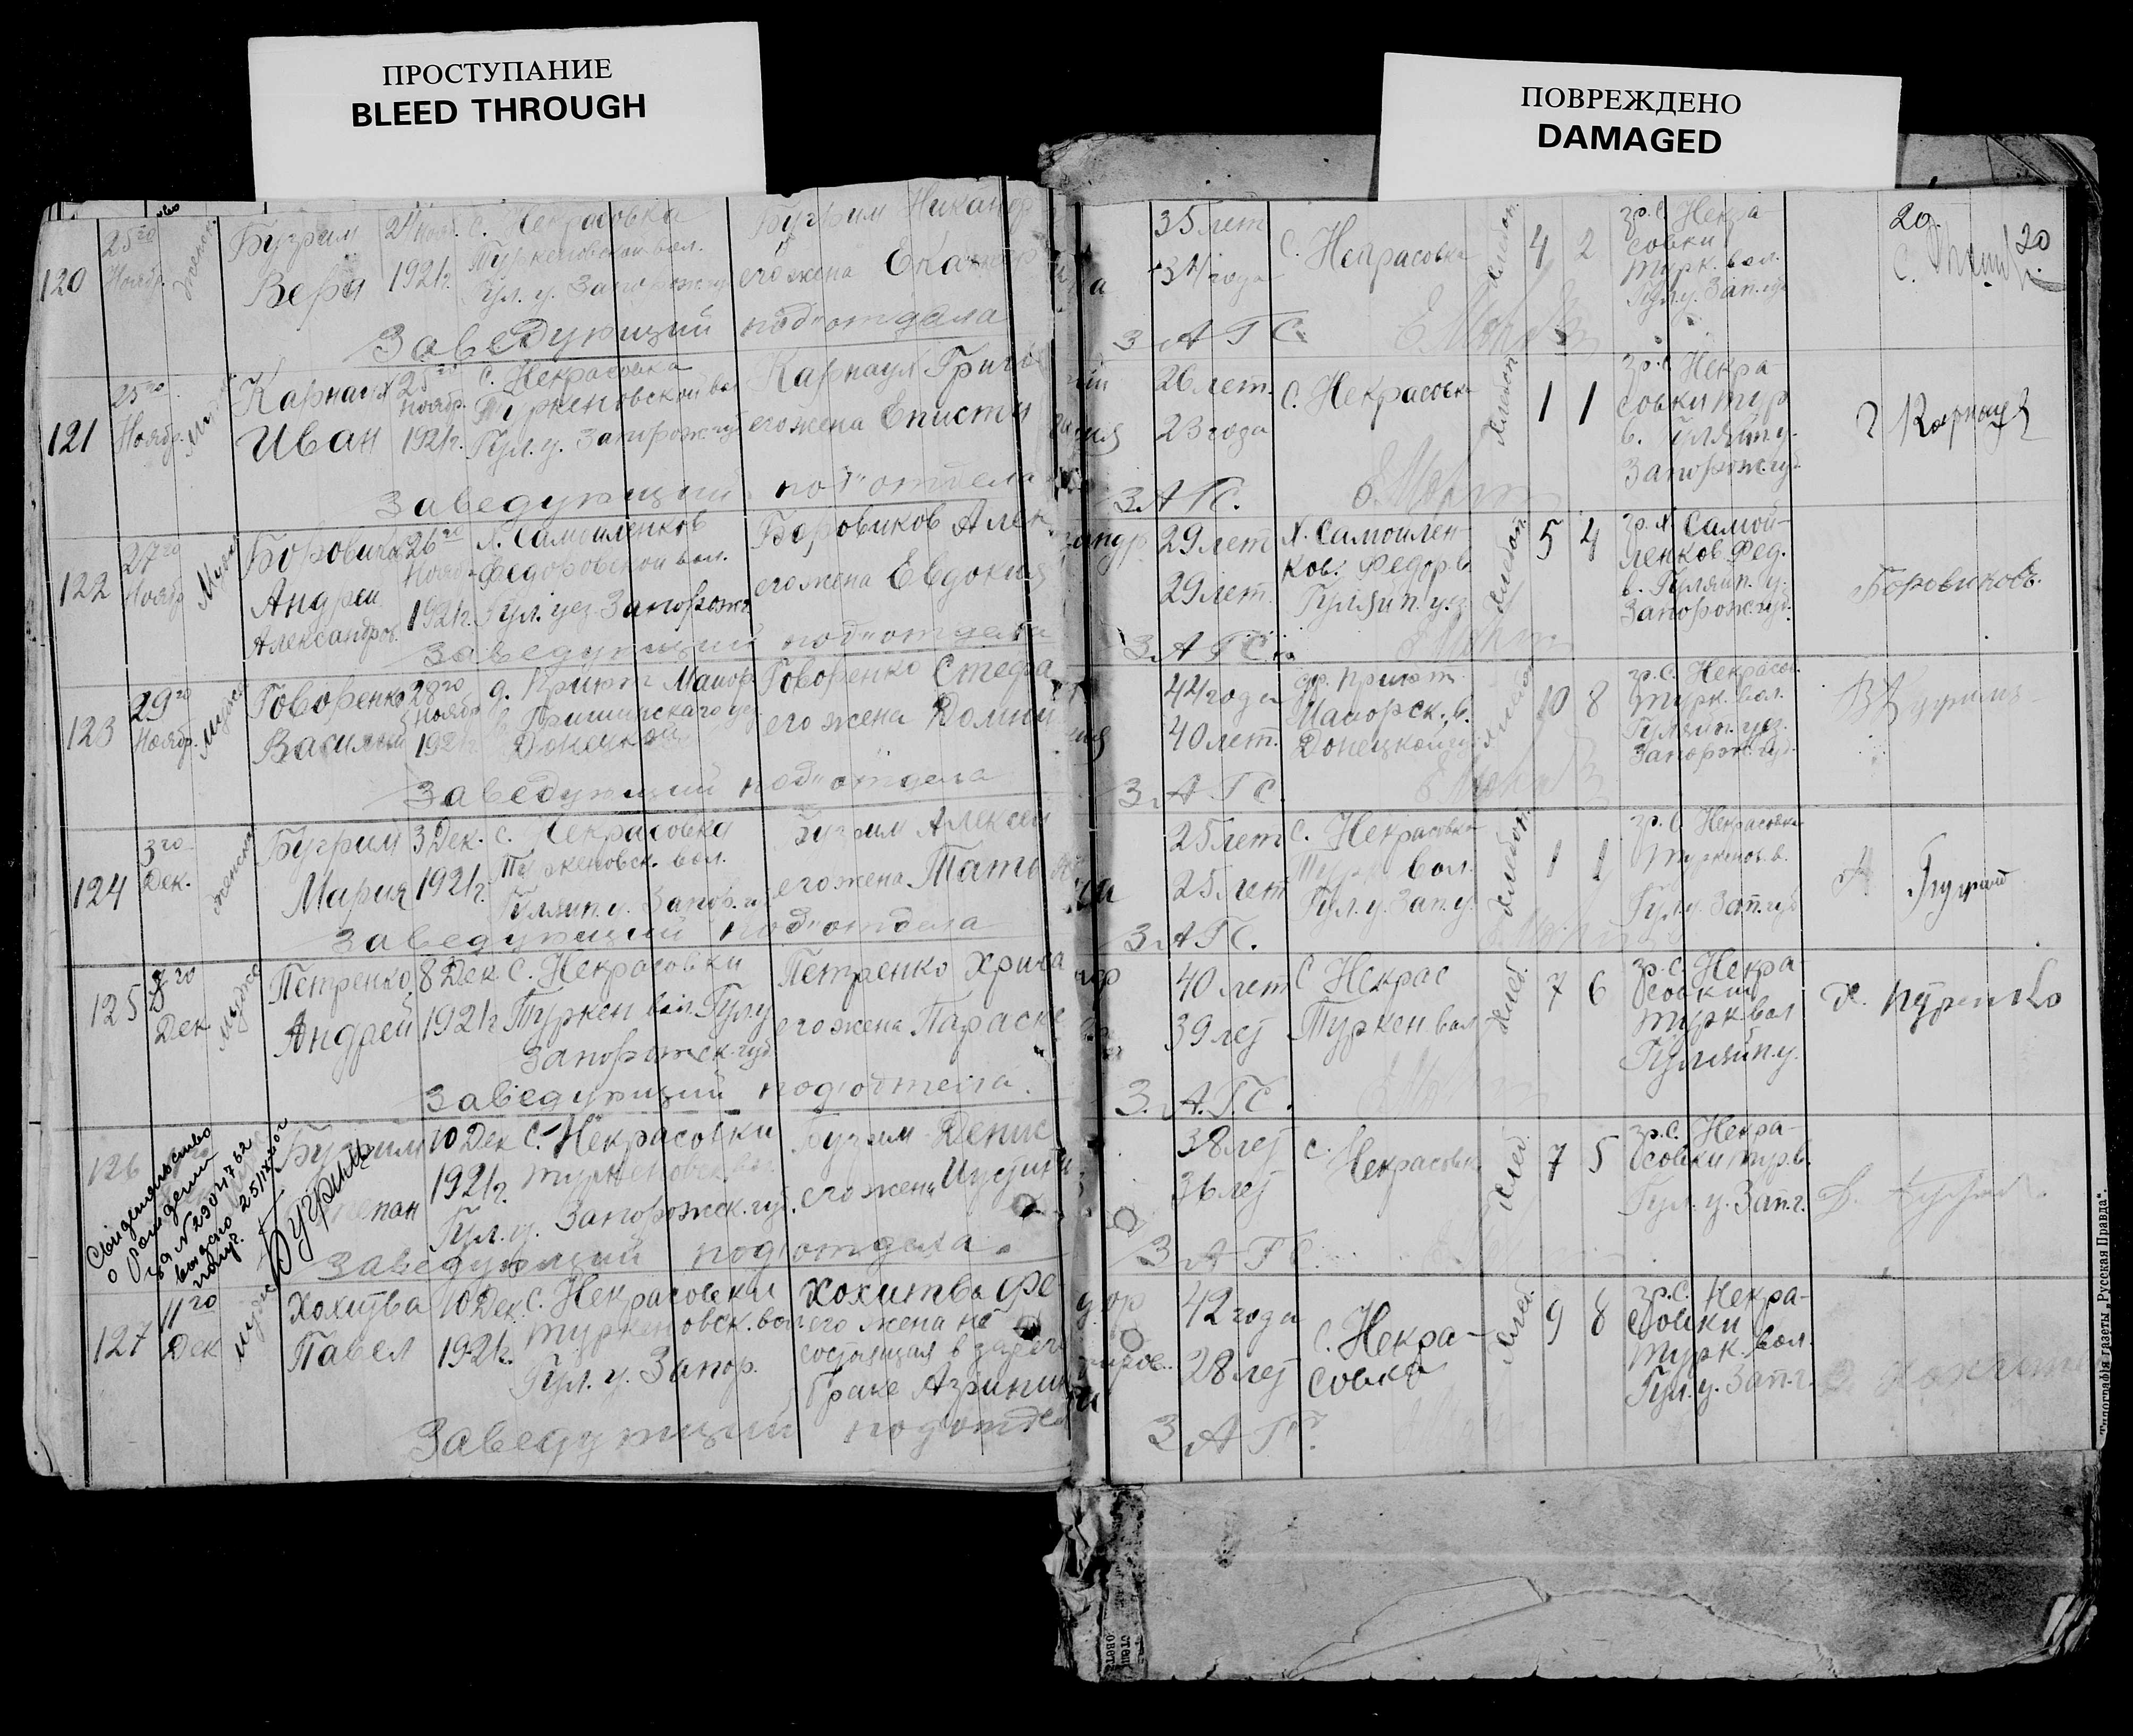 ПРОСТУПАНИЕ
BLEED THROUGH
ПОВРЕЖДЕНО
DAMAGED
20.
20
120
25го
Ноябр.
женск.
Бугрим
Вера
24 Нояб.
1921г.
с. Некрасовка
Туркеновской вол.
Гул. у. Запорож.
Бугрим Никандр
его жена
35 лет
34 года
С. Некрасовка
хлебоп.
4
2
гр. С. Некра-
совки
Турк. вол.
Гул. у. Зап. губ
Заведующий под"отдела
З. А Г С.
121
25го
Ноябр.
Иван
25го
Ноябр.
1921г.
с. Некрасовка
Туркеновской вол
Гул. у. Запорож. губ
Карнаух Григо
рий
его жена Епистимия
26 лет.
23 года
С. Некрасовка
хлебоп.
1
1
гр. С. Некра-
совки тур
в. Гуляйп. у.
Запорож. губ.
Заведующий под"отдела
З. А Г С.
122
27го
Ноябр
Мужск
Андрей
Александров.
26го
Нояб.
1921г.
х. Самойленков
Федоровской вол.
Гул. уез. Запорож.
Боровиков Алек
сандр
его жена Евдокия
29 лет
29 лет.
х. Самойлен-
ков. Федор. в.
Гуляйп. уез.
хлебоп.
5
4
гр. х. Самой-
ленков Фед.
в. Гуляйп. у.
Запорож. губ.
Боровиковъ.
Заведующий под"отдела
З. А Г С.
123
29го
Ноябр.
Мужск
Говоренко
Василий
28го
Ноябр
1921г.
д. Приют Маиор
в. Гришинскаго уез
Донецкой
Говоренко Стефа
его жена Домни
кия
44 года
40 лет.
др. Приют
Маиорск. в.
Донецкой гу
10
8
гр. С. Некрасов.
Турк. вол.
Гуляйп. уез.
Запорож. губ.
Заведующий под"отдела
З. А Г С.
124
3го
Дек.
женск
Бугрим
Мария
3 Дек.
1921г.
с. Некрасовка
Туркеновск. вол.
Гуляйп. у. Запор. г.
Бугрим Алексей
его жена Татьяна
25 лет
25 лет
С. Некрасовка
Турк вол.
Гул. у. Зап. у.
хлебоп.
1
1
гр. С. Некрасовки
Туркенов. в.
Гул. у. Зап. губ
Заведующий под"отдела
З. А Г С.
125
Дек
мужск
Петренко
Андрей
8 Дек
1921г
С. Некрасовки
Туркен вол. Гул. у
Запорожск. губ
Петренко
его жена Параске
40 лет
39 лет
С Некрас
Туркен. вол
хлеб.
7
6
гр. С. Некра-
совки
Турк вол
Гуляйп. у.
Заведующий подотдела.
З. А. Г. С.
126
Свидетельство
о рождении
за №
выдано
получ.
Бугрим
Бугрим
10 Дек
1921г.
С. Некрасовки
Туркеновск вол
Гул. у. Запорожск. губ.
Бугрим Денис
его жена
38 лет
36 лет
С. Некрасовка
хлеб.
7
5
гр. С. Некра-
совки тур. в.
Гул. у. Зап. г.
Заведующий подотдела.
З. А Г С.
127
11го
Дек
мужск
Хохитва
Павел
10 Дек.
1921г.
С. Некрасовки
Туркеновск. вол.
Гул. у. Запор.
Хохитва Фе
дор
его жена не
состоящая в зареги
стриров.
браке
42 года
28 лет
С. Некра-
совка
хлеб.
9
8
гр. С. Некра-
совки
Турк. вол.
Гул. у. Зап. г.
Заведующий подотдел
З. А Г
Типографія газеты „Русская Правда".